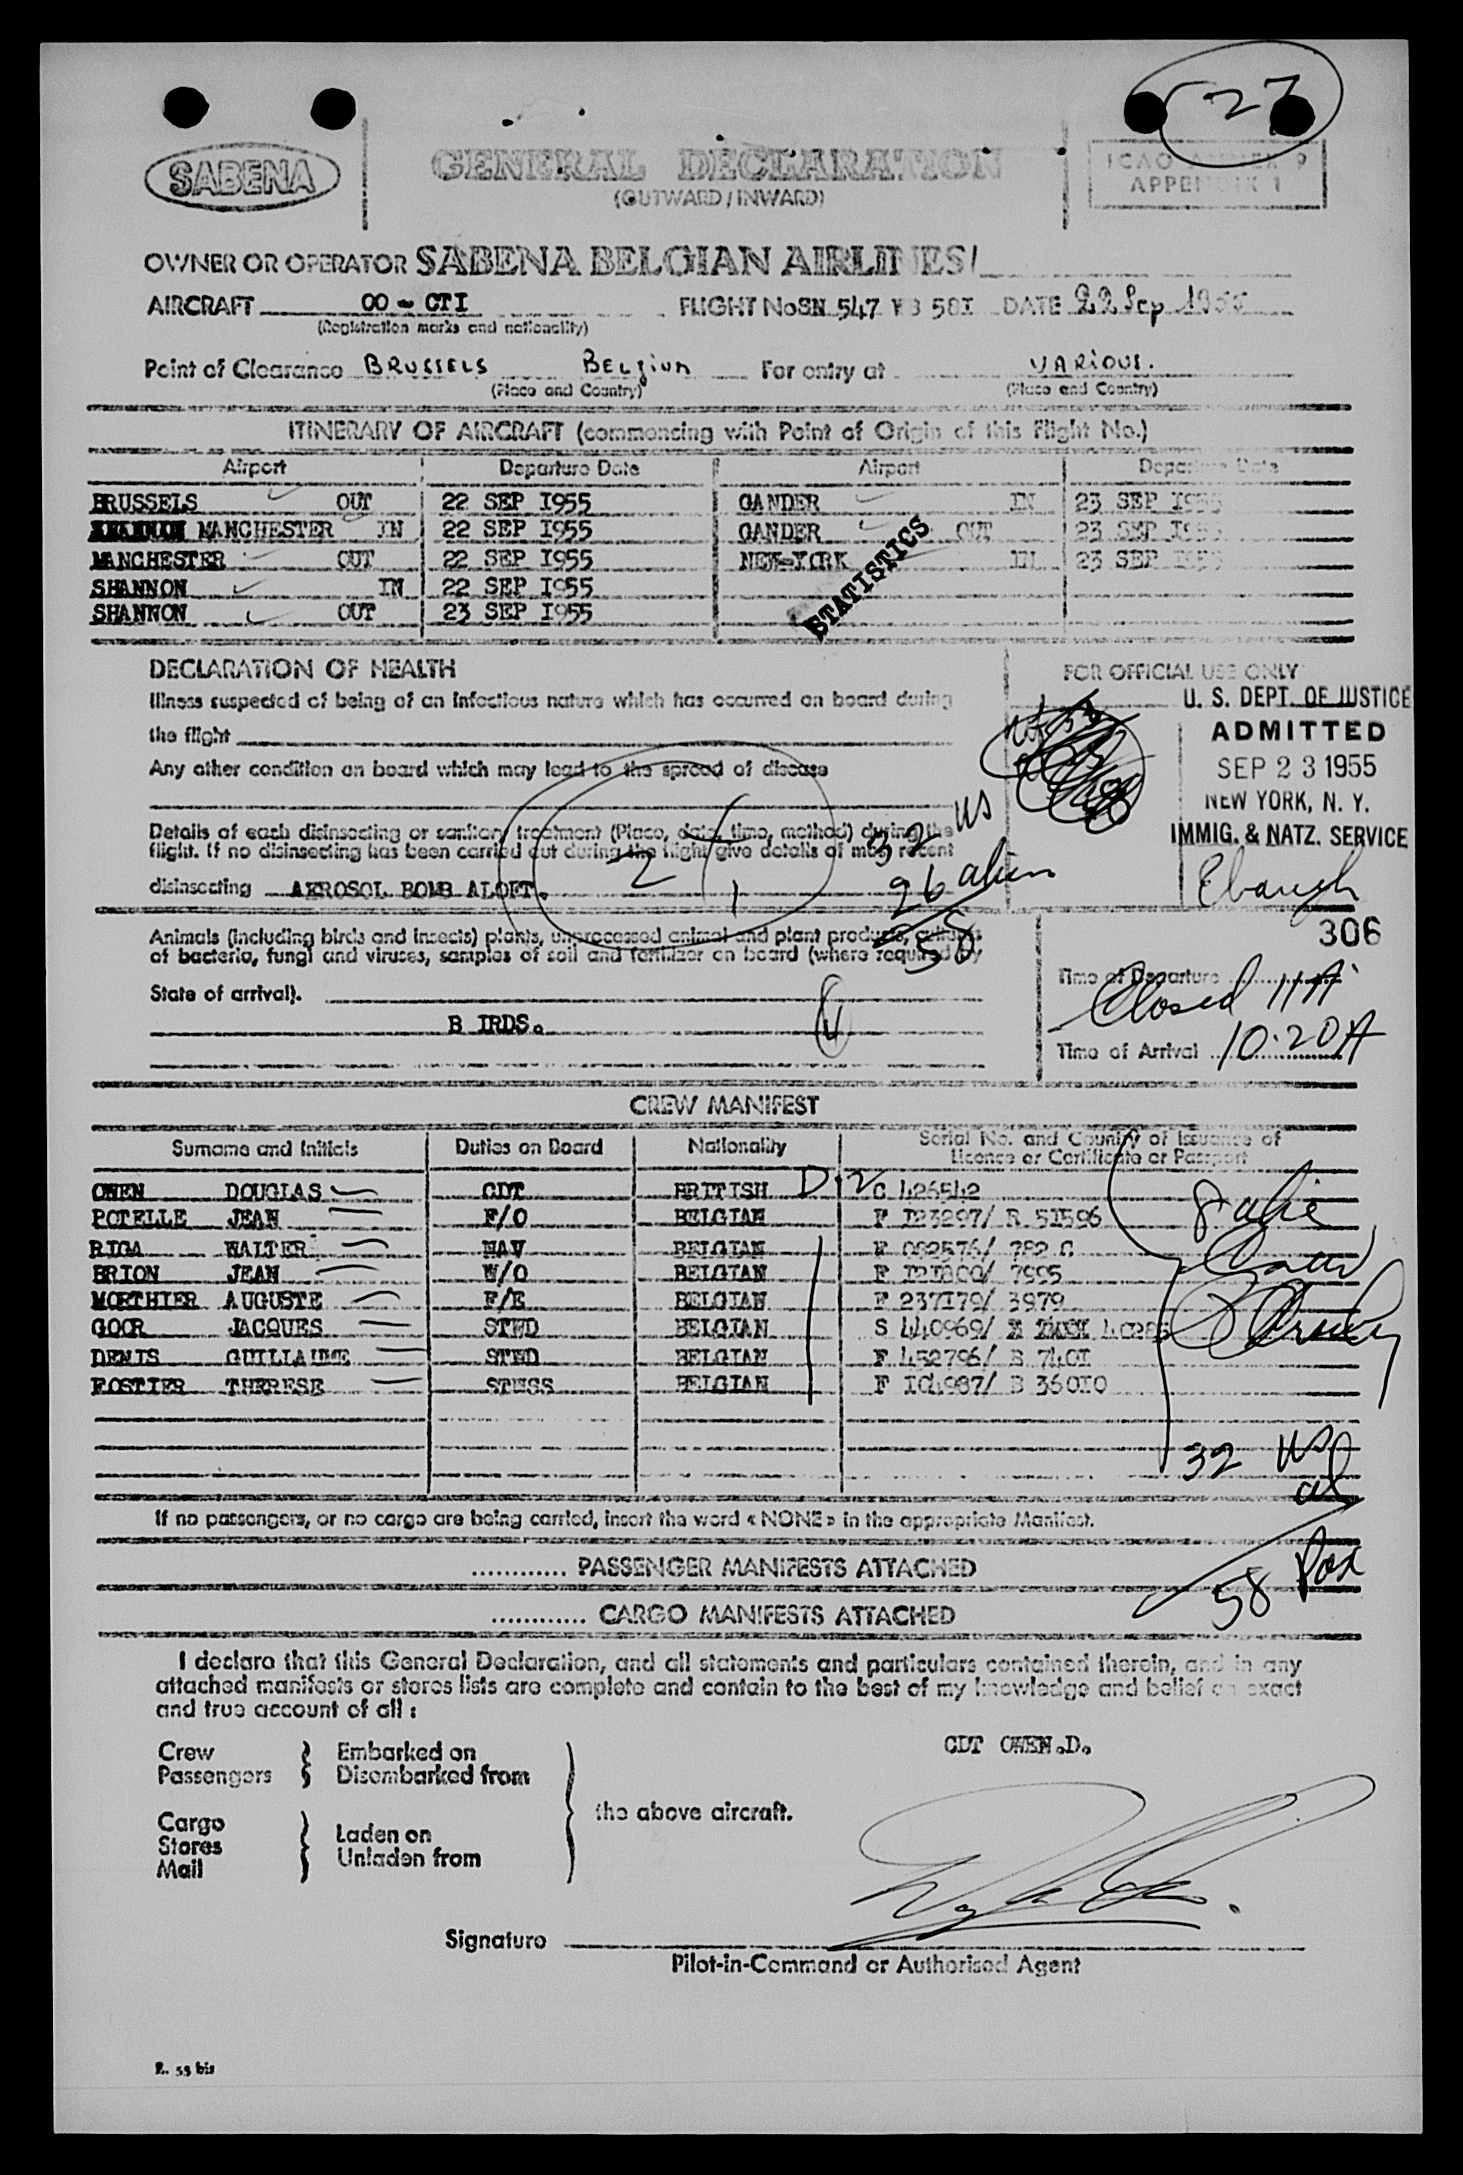 27
SABENA
GENERAL DECLARATION
(OUTWARD / INWARD)
ICAO ANNEX 9
APPENDIX 1
OWNER OR OPERATOR SABENA BELGIAN AIRLINES
AIRCRAFT OO - CTI FLIGHT No SN 547 DATE 22 Sep 1955
(Registration marks and nationality)
Point of Clearance BRUSSELS Belgium For entry at VARIOUS.
(Place and Country) (Place and Country)
ITINERARY OF AIRCRAFT (commencing with Point of Origin of this Flight No.)
Airport Departure Date Airport Departure Date
BRUSSELS OUT 22 SEP I955 GANDER IN 23 SEP I955
MANCHESTER IN 22 SEP I955 GANDER OUT 23 SEP I955
MANCHESTER OUT 22 SEP I955 NEW-YORK IN 23 SEP I955
SHANNON IN 22 SEP I955
SHANNON OUT 23 SEP I955
STATISTICS
DECLARATION OF HEALTH
Illness suspected of being of an infectious nature which has occurred on board during
the flight
Any other condition on board which may lead to the spread of disease
Details of each disinsecting or sanitary treatment (Place, date, time, method) during the
flight. If no disinsecting has been carried out during the flight give details of most recent
disinsecting AEROSOL BOMB ALOFT.
32 US
26 alien
58
FOR OFFICIAL USE ONLY
U. S. DEPT. OF JUSTICE
ADMITTED
SEP 23 1955
NEW YORK, N. Y.
IMMIG. & NATZ. SERVICE
306
Animals (including birds and insects) plants, unprocessed animal and plant products, cultures
of bacteria, fungi and viruses, samples of soil and fertilizer on board (where required by
State of arrival).
BIRDS.
Time of Departure
Closed 11 A
Time of Arrival 10:20 A
CREW MANIFEST
Surname and Initials Duties on Board Nationality Serial No. and Country of Issuance of
Licence or Certificate or Passport
OWEN DOUGLAS CDT BRITISH C 426542
POTELLE JEAN F/O BELGIAN F I23297/ R 5I596
RIGA WALTER NAV BELGIAN
BRION JEAN W/O BELGIAN
MORTHIER AUGUSTE F/E BELGIAN F 237I79/ 3979
GOOR JACQUES STWD BELGIAN S 440969/
DENIS GUILLAUME STWD BELGIAN F 452796/ B 740I
ROSTIER THERESE STWSS BELGIAN F I04987/ B 360I0
32 US
al
58 Pax
If no passengers, or no cargo are being carried, insert the word « NONE » in the appropriate Manifest.
............ PASSENGER MANIFESTS ATTACHED
............ CARGO MANIFESTS ATTACHED
I declare that this General Declaration, and all statements and particulars contained therein, and in any
attached manifests or stores lists are complete and contain to the best of my knowledge and belief an exact
and true account of all :
CDT OWEN.D.
Crew Embarked on
Passengers Disembarked from
the above aircraft.
Cargo
Stores Laden on
Mail Unladen from
Signature
Pilot-in-Command or Authorised Agent
R. 53 bis